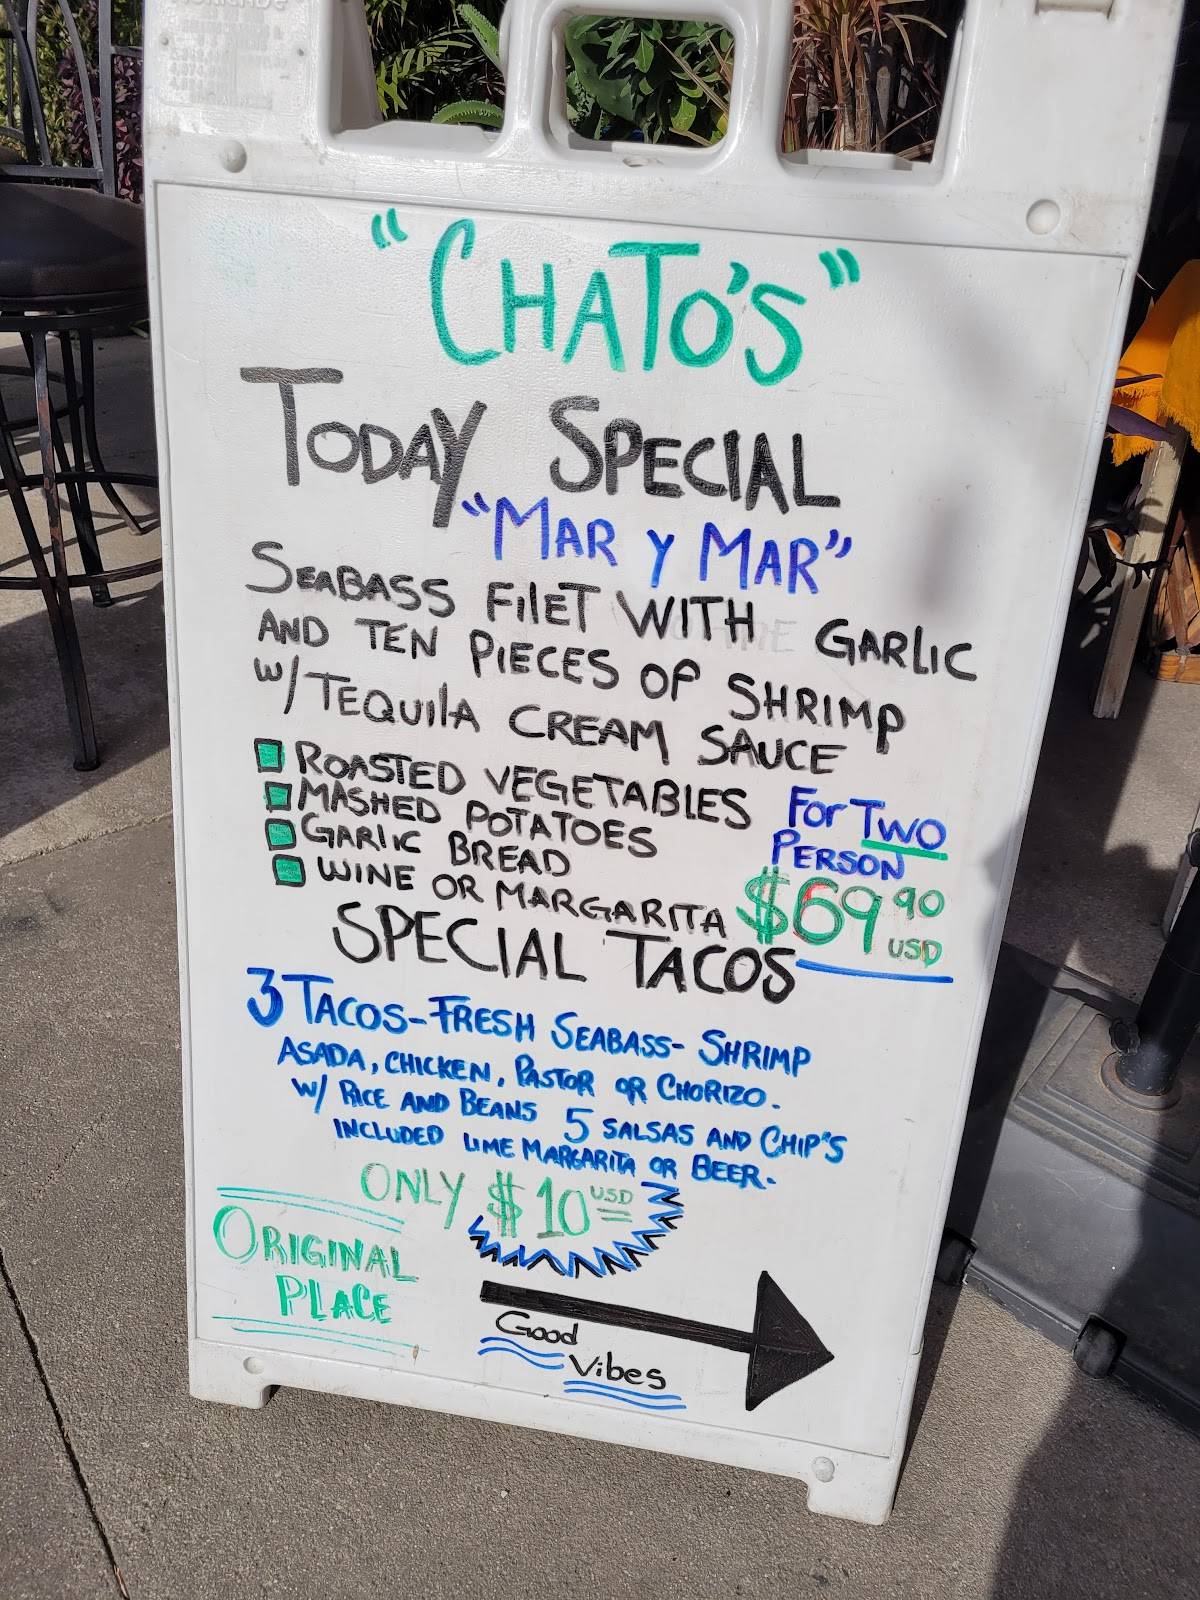 "CHATO'S"
TODAY SPECIAL
"MAR Y MAR"
SEABASS FILET WITH GARLIC
AND TEN PIECES OF SHRIMP
W/TEQUILA CREAM SAUCE
ROASTED VEGETABLES
MASHED POTATOES
GARLIC BREAD
WINE OR MARGARITA
FOR TWO
PERSON
$69.90
USD
SPECIAL TACOS
3 TACOS-FRESH SEABASS- SHRIMP
ASADA, CHICKEN, PASTOR OR CHORIZO.
W/ RICE AND BEANS 5 SALSAS AND CHIP'S
INCLUDED LIME MARGARITA OR BEER.
ONLY $10 USD
ORIGINAL
PLACE
Good
Vibes